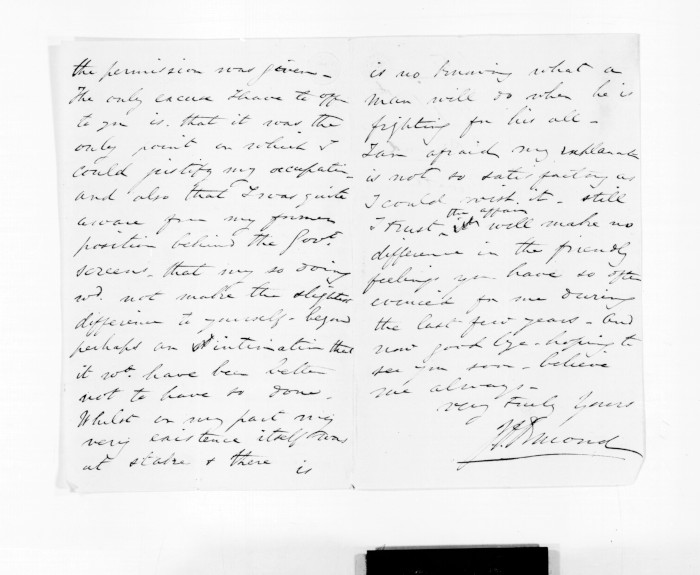 the permission was given –
The only excuse I have to offer
to you is. that it was the
only point on which I
could justify my occupation
and also that I was quite
aware from my former
position behind the Govt.
screens. that my so doing
wd. not make the slightest
difference to yourself – beyond
perhaps an intimation that
it wd. have been better
not to have so done –
Whilst on my part my
very existence itself was
at stake & there is
is no knowing what a
man will do when he is
fighting for his all –
I am afraid my explanation
is not so satisfactory as
I could wish it – still
I trust the affair will make no
difference in the friendly
feelings you have so often
evinced for me during
the last few years – and
now good bye – hoping to
see you soon – believe
me always –
very truly yours